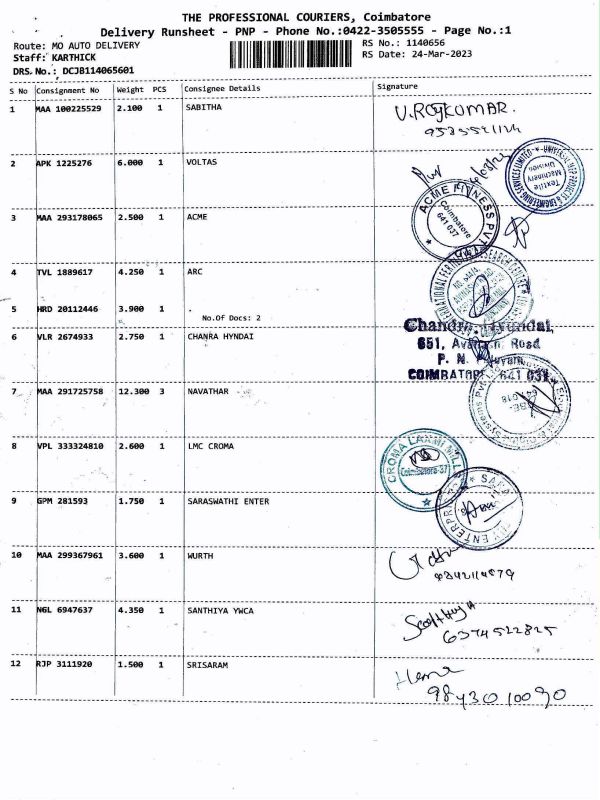 THE PROFESSIONAL COURIERS, Coimbatore
Delivery Runsheet - PNP - Phone No.:0422-3505555 - Page No.:1
Route: MO AUTO DELIVERY
RS No.: 1140656
Staff: KARTHICK
RS Date: 24-Mar-2023
DRS No.: DCJB114065601
S No Consignment No Weight PCS Consignee Details Signature
1 MAA 100225529 2.100 1 SABITHA
U.RAJKUMAR.
2 APK 1225276 6.000 1 VOLTAS
Textile Machinery Division
3 MAA 293178065 2.500 1 ACME
ACME FITNESS PVT
Coimbatore
641 037
4 TVL 1889617 4.250 1 ARC
5 HRD 20112446 3.900 1 .
No.Of Docs: 2
6 VLR 2674933 2.750 1 CHANRA HYNDAI
Chandra Hyundai,
651, Road
P. N.
COIMBATORE 641 037
7 MAA 291725758 12.300 3 NAVATHAR
8 VPL 333324810 2.600 1 LMC CROMA
CROMA LAXMI MILL
Coimbatore-37
9 GPM 281593 1.750 1 SARASWATHI ENTER
10 MAA 299367961 3.600 1 WURTH
11 NGL 6947637 4.350 1 SANTHIYA YWCA
6374522825
12 RJP 3111920 1.500 1 SRISARAM
Hema
9843010090